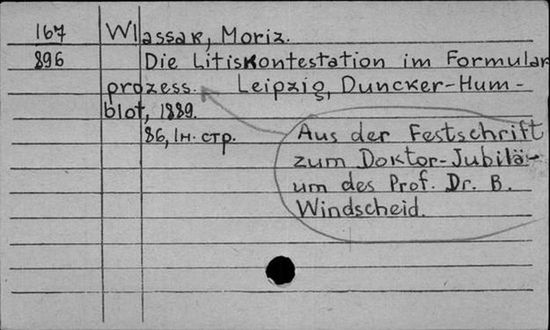 167 Wlassak, Moriz.
896 Die Litiskontestation im Formular
prozess. Leipzig, Duncker-Hum-
blot, 1889.
86, Iн. стр.
Aus der Festschrift
zum Doktor-Jubilä-
um des Prof. Dr. B.
Windscheid.